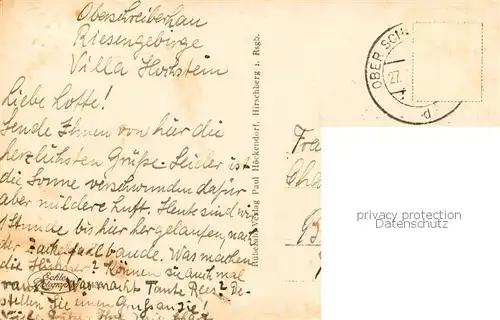 Oberschreiberhau
Riesengebirge
Villa Hochstein
Liebe Lotte!
Sende Ihnen von hier die
herzlichsten Grüße. Leider ist
die Sonne verschwunden dafür
aber mildere Luft. Heute sind wir
1 Stunde bis hier hergelaufen, nach
der Zackelfallbaude. Was machen
die Häuser? Können sie auch mal
raus? Was macht Tante Rees? Be-
stellen Sie einen Gruß an sie!
Echte
Fotografie
Rübezahl-Verlag Paul Höckendorf, Hirschberg i. Rsgb.
OBER SCH
27.
d
Fra
privacy protection
Datenschutz